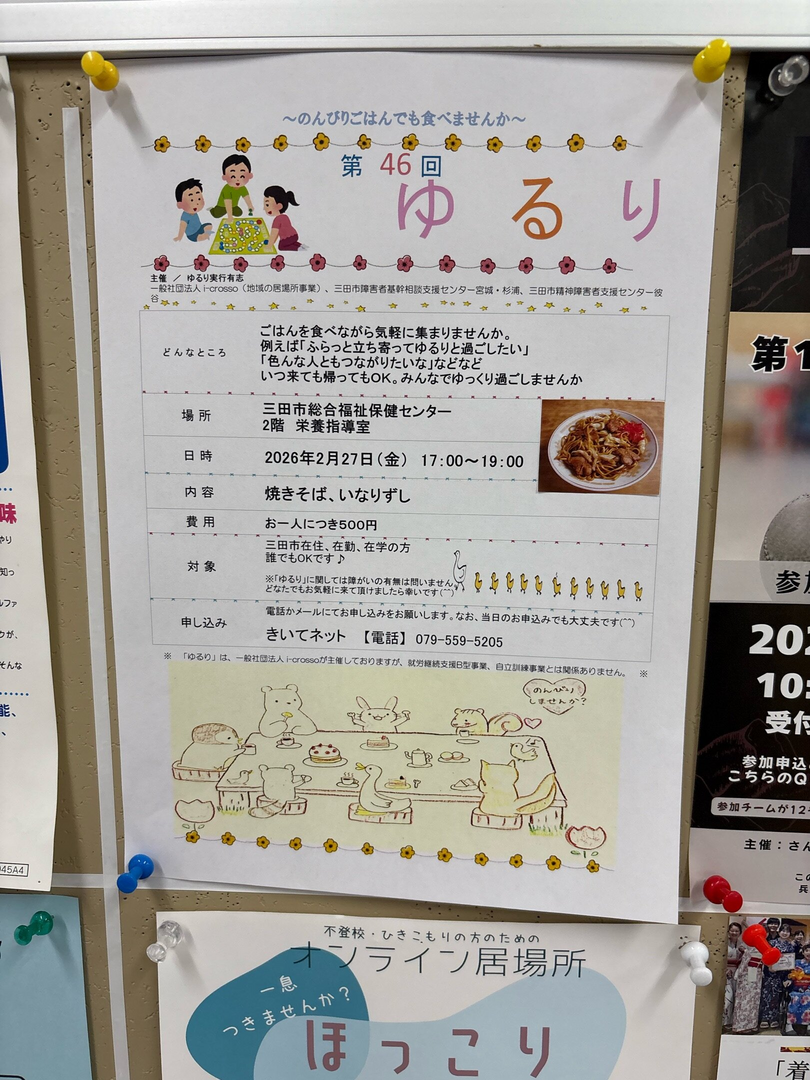 〜のんびりごはんでも食べませんか〜
第 46 回
ゆるり
主催 / ゆるり実行有志
一般社団法人 i-crosso(地域の居場所事業)、三田市障害者基幹相談支援センター宮城・杉浦、三田市精神障害者支援センター彼
谷
どんなところ
ごはんを食べながら気軽に集まりませんか。
例えば「ふらっと立ち寄ってゆるりと過ごしたい」
「色んな人ともつながりたいな」などなど
いつ来ても帰ってもOK。みんなでゆっくり過ごしませんか
場所
三田市総合福祉保健センター
2階 栄養指導室
日時
2026年2月27日(金) 17:00〜19:00
内容
焼きそば、いなりずし
費用
お一人につき500円
対象
三田市在住、在勤、在学の方
誰でもOKです♪
※「ゆるり」に関しては障がいの有無は問いません。
どなたでもお気軽に来て頂けましたら幸いです(^^)
申し込み
電話かメールにてお申し込みをお願いします。なお、当日のお申込みでも大丈夫です(^^)
きいてネット 【電話】 079-559-5205
※ 「ゆるり」は、一般社団法人 i-crossoが主催しておりますが、就労継続支援B型事業、自立訓練事業とは関係ありません。 ※
のんびり
しませんか?
不登校・ひきこもりの方のための
オンライン居場所
一息
つきませんか?
ほっこり
味
045A4
第1
参加
202
10:
受付
参加申込
こちらのQ
参加チームが12
主催:さん
「着